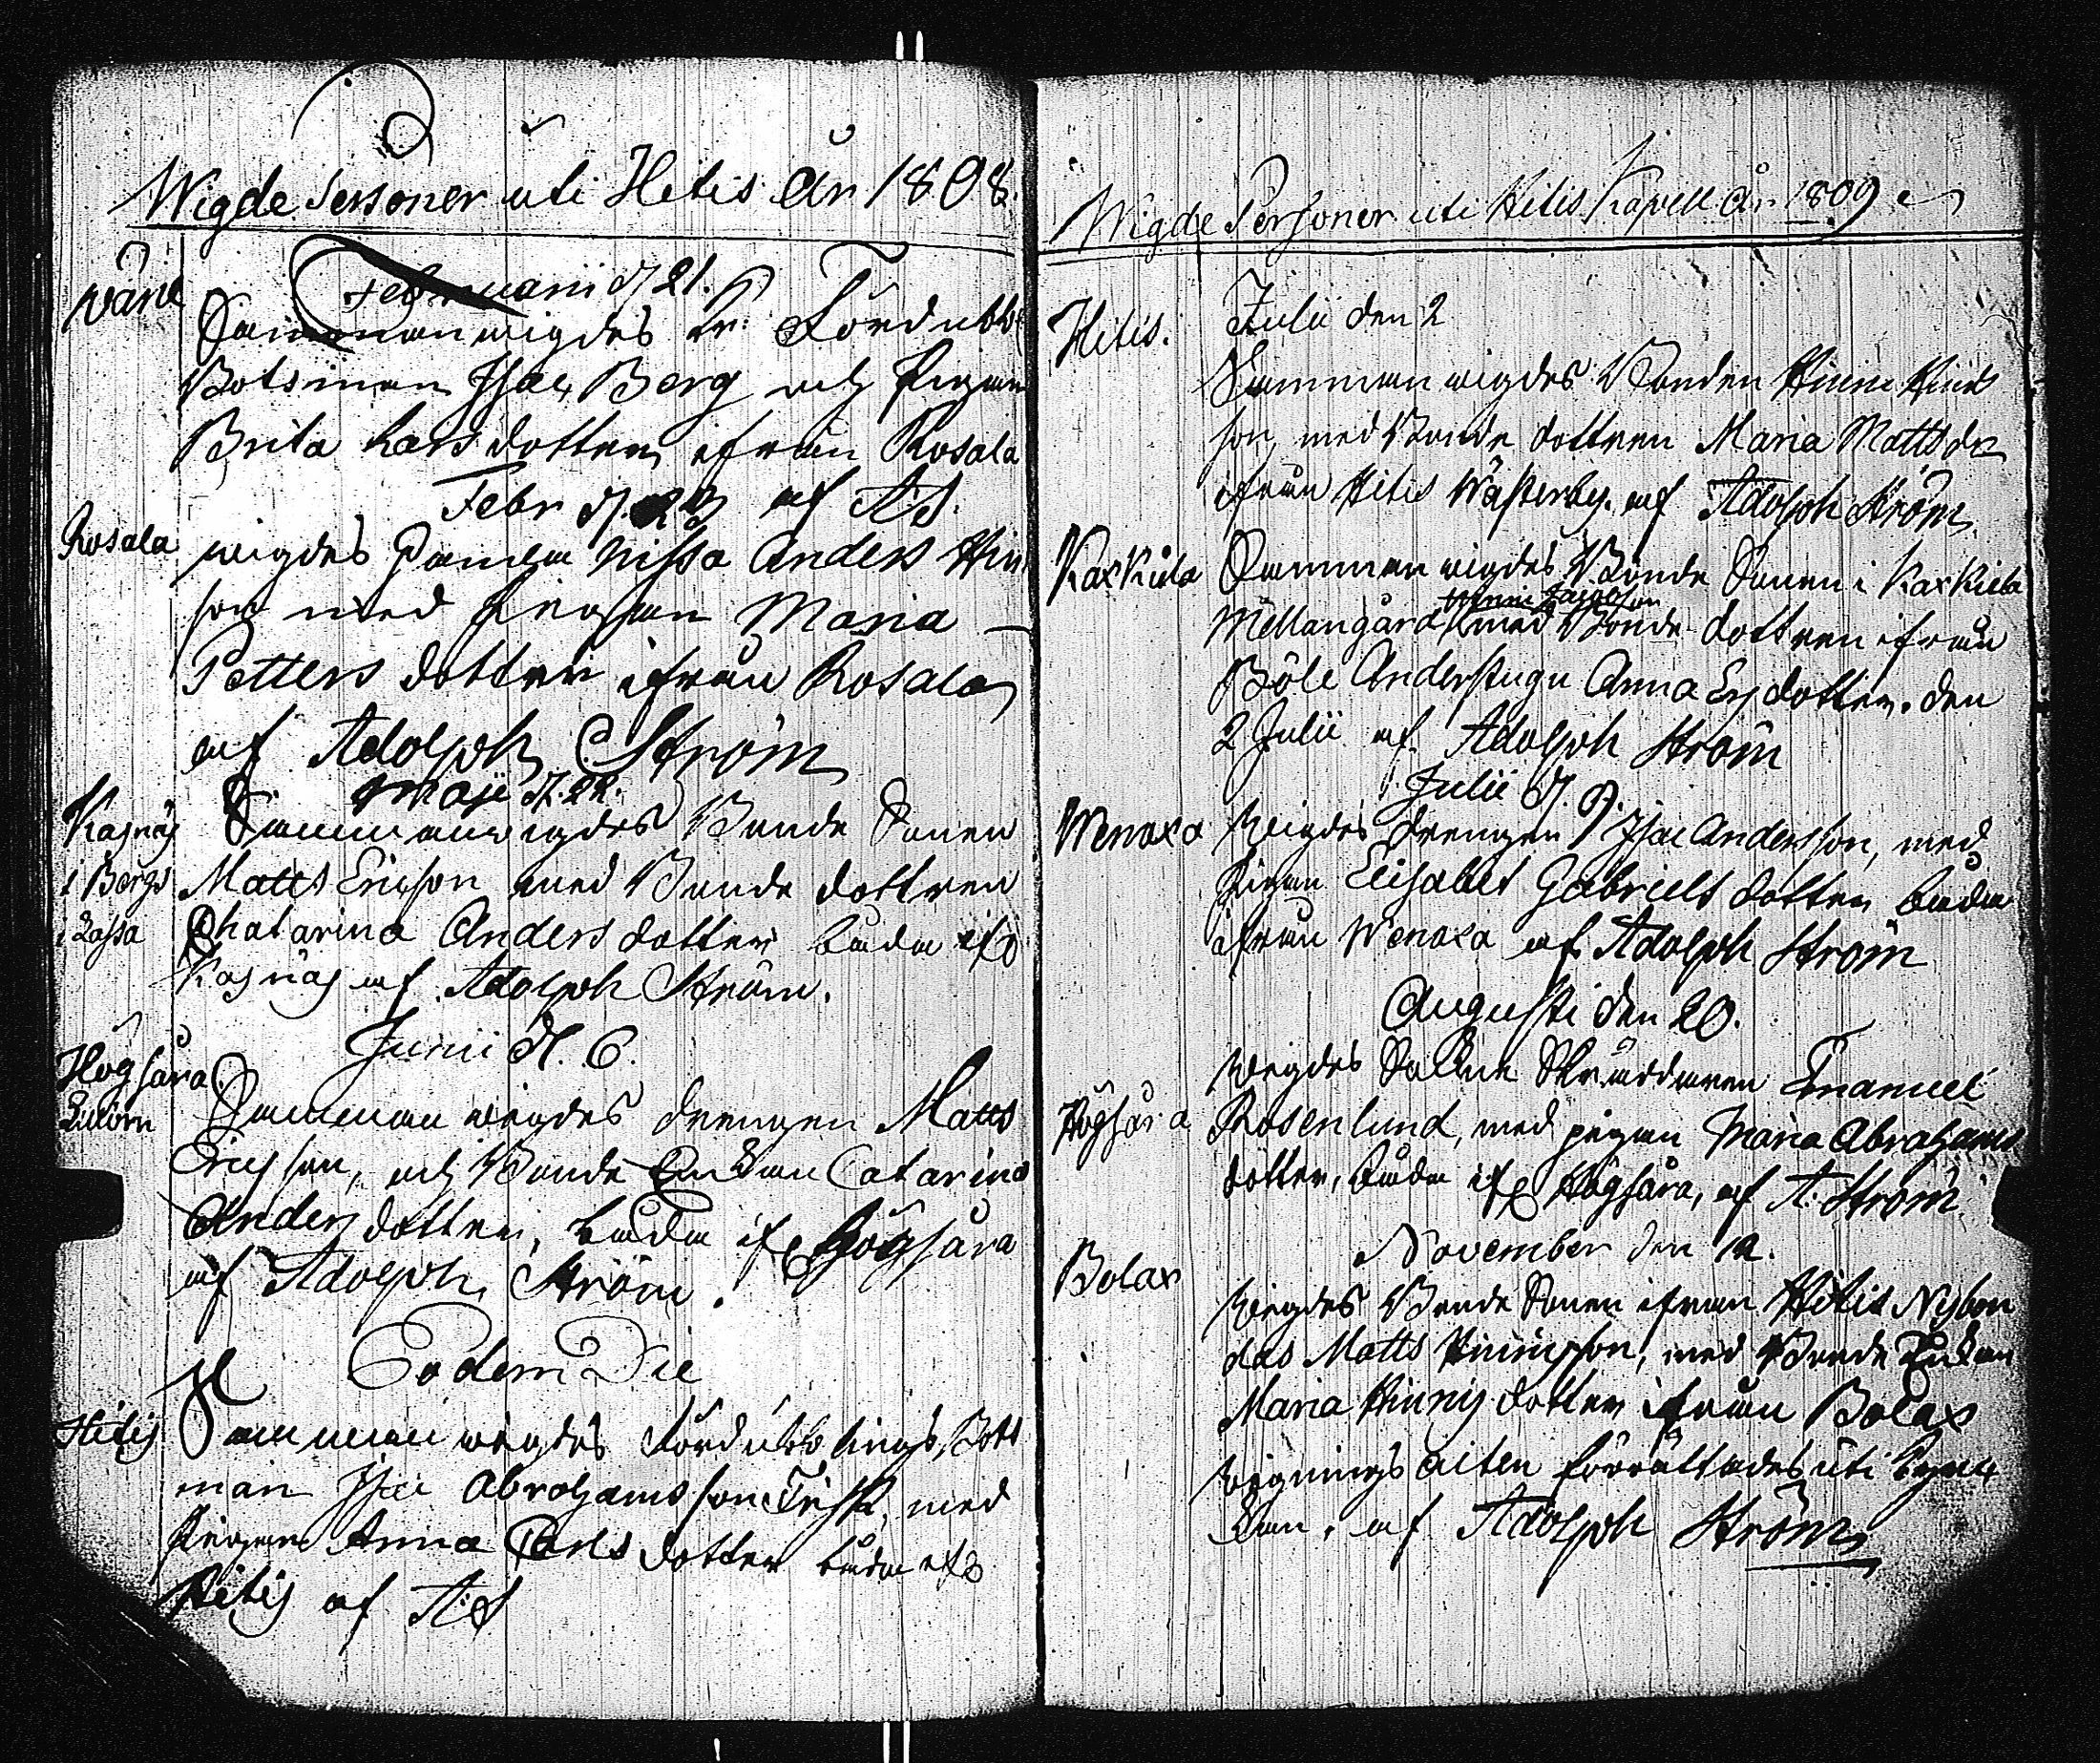 Wigde Personer uti Hitis År 1808.
Februarii d 21.
Wänö
Sammanwigdes Kr: Fördubbl
Botsman Isac Berg och Pigan
Brita Larsdotter ifrån Rosala
Febr d. af AS.
Rosala wigdes Anders Hin
son med Pigan Maria
Petters dotter ifrån Rosala
af Adolph Ström
Maji d. 22.
Kasnäs Sammanwigdes Bonde Sonen
i Bergs Matts Ericson med Bonde dottren
Chatarina Anders dotter båda ifr
Kasnäs af Adolph Ström.
Junii d. 6.
Högsåra
Samman wigdes drengen Matts
Ericsson, och Bonde Enkan Catarina
Anders dotter, båda ifr Högsåra
af Adolph Ström.
Eodem Die
Hitis Samman wigdes Fördubblings Båts
man Isac Abrahamsson Frisk, med
Pigan Anna Carls dotter båda ifr
Hitis af AS
Wigde Personer uti Hitis Kapell År 1809
Hitis. Julii den 2
Samman wigdes Bonden Hinric Hinrics
son, med Bonde dottren Maria Matts dr
ifrån Hitis Wästerby. af Adolph Ström.
Kaxkiela Samman wigdes Bonde Sonen i Kaxkiela
Mellangård Jacobson med Bonde dottren ifrån
Böle Anderstugu Anna Ersdotter. den
2 Julii af Adolph Ström
Julii d. 9.
Wenoxa Wigdes drengen Isac Andersson, med
Pigan Elisabet Gabriels dotter båda
ifrån Wenoxa af Adolph Ström
Augusti den 20.
Wigdes Sokne Skräddaren Emanuel
Högsåra Rosenlund, med pigan Maria Abrahams
dotter, båda ifr Högsåra, af A. Ström
November den 12.
Bolax
Wigdes Bonde Sonen ifrån Hitis Nybon
das Matts Hinricsson, med Bonde Enkan
Maria Hinrics dotter ifrån Bolax
wignings acten förrättades uti Kyrc
kan, af Adolph Ström